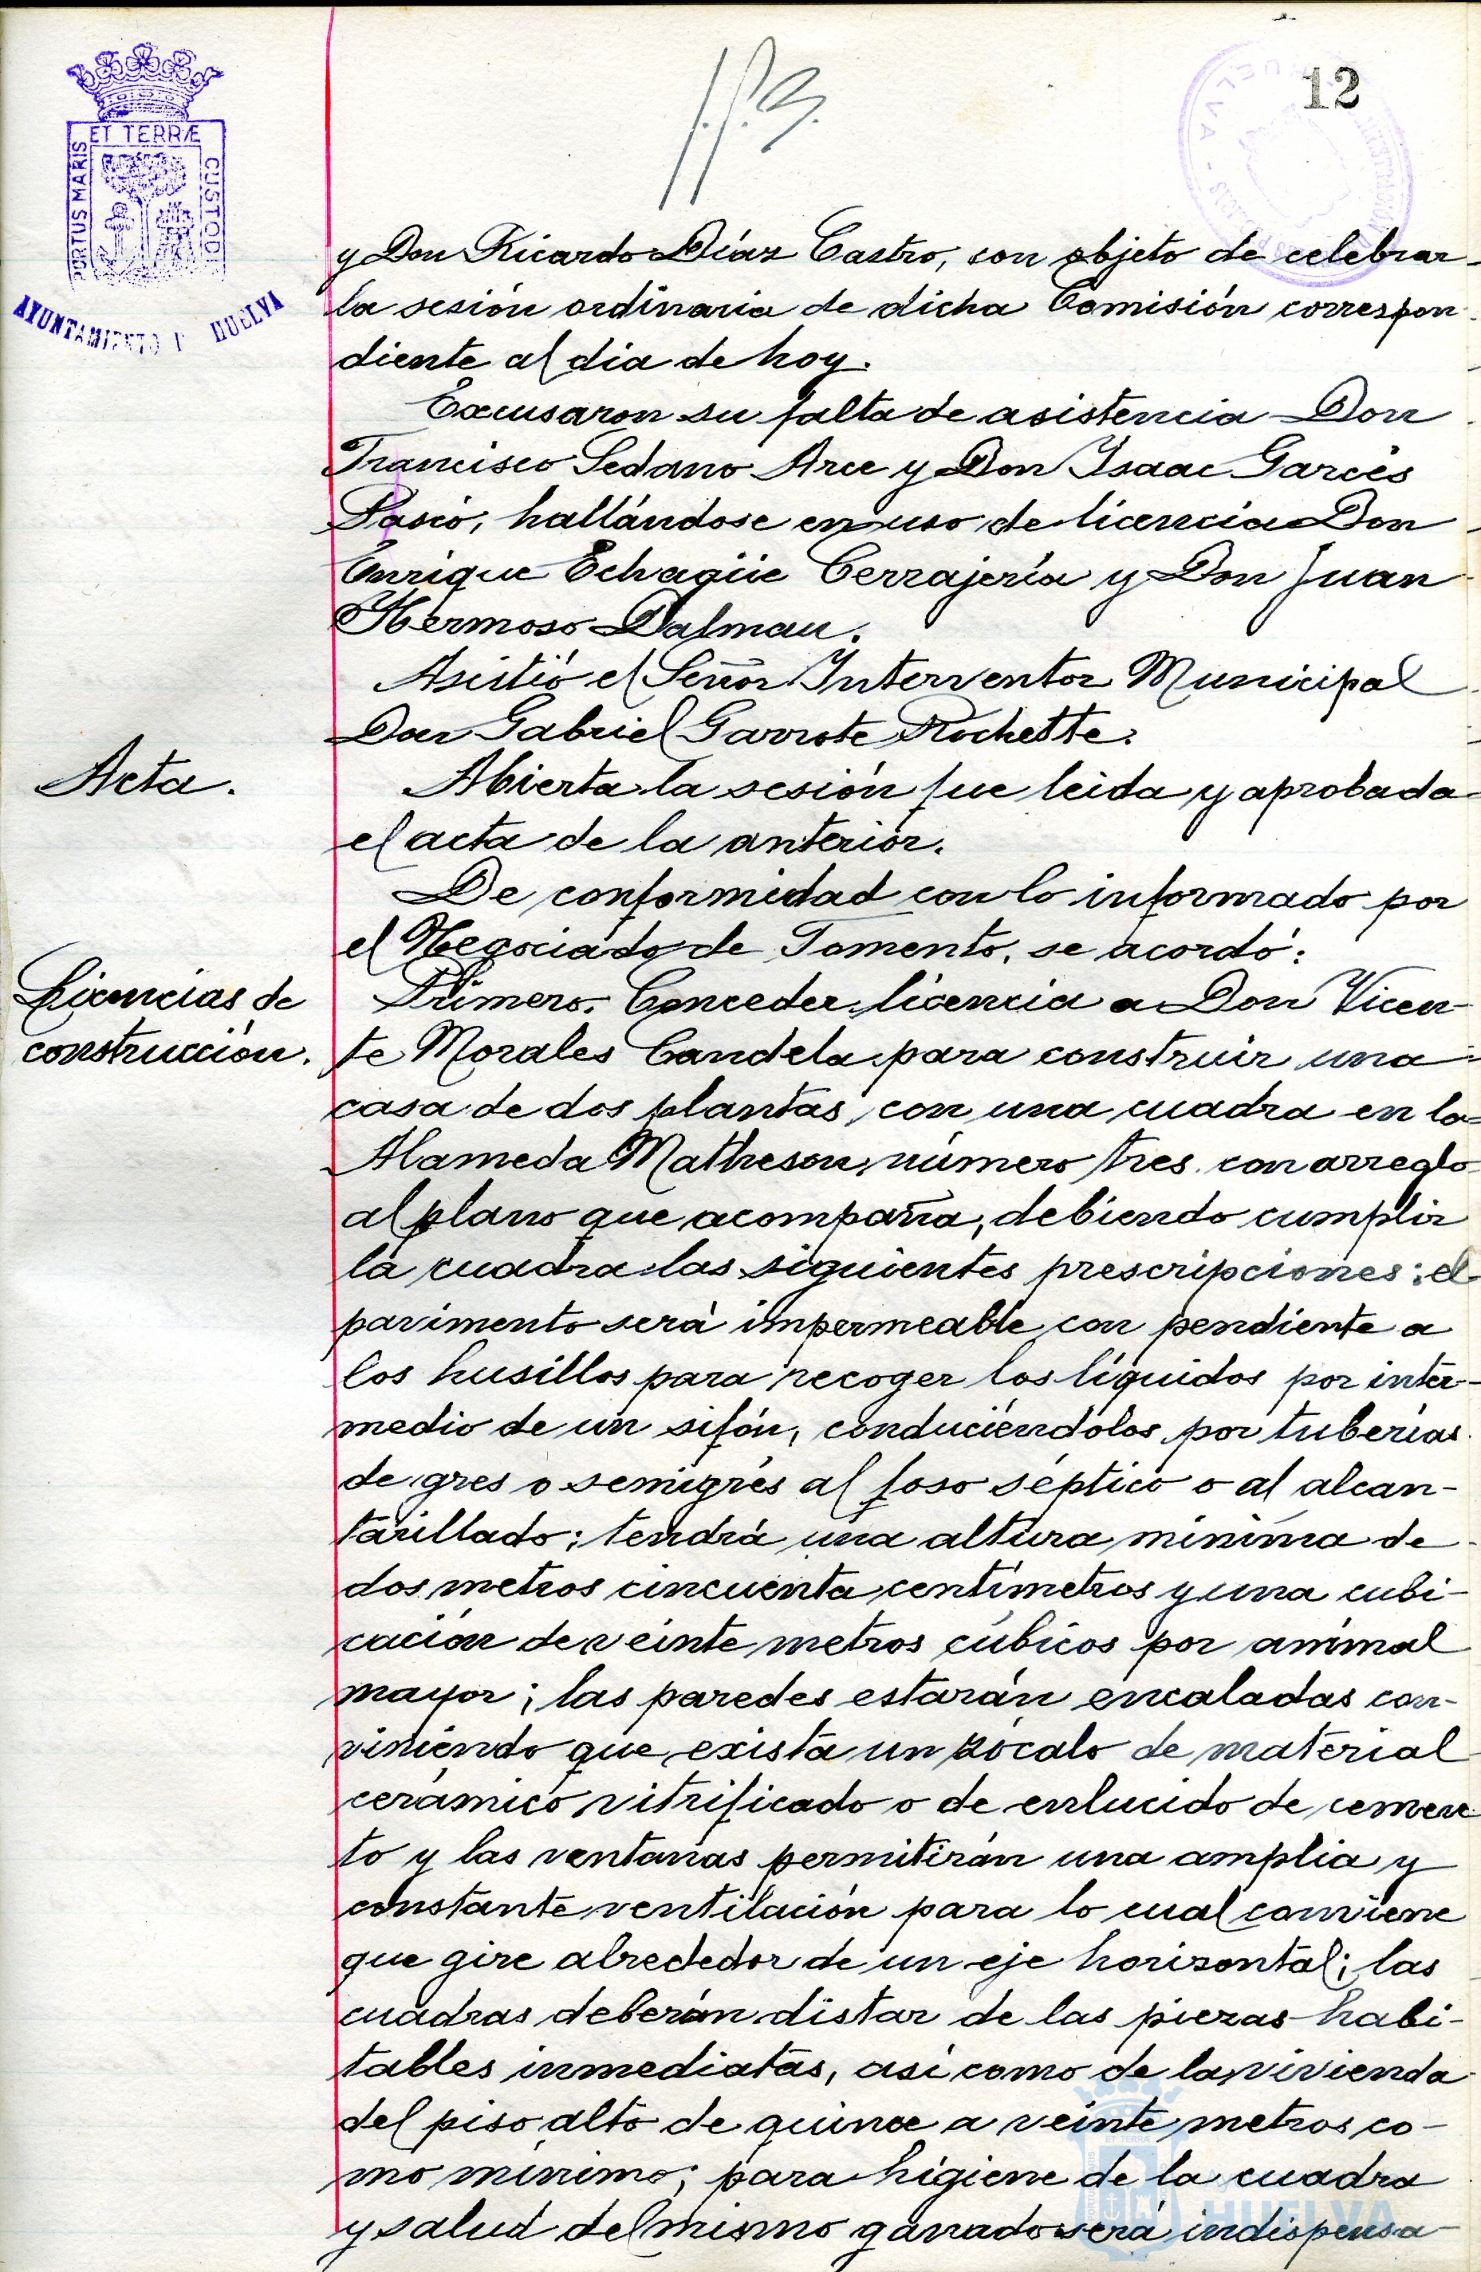 12
ET TERRÆ
PORTUS MARIS
CUSTODI
AYUNTAMIENTO D HUELVA
y Don Ricardo Díaz Castro, con objeto de celebrar
la sesión ordinaria de dicha Comisión correspon-
diente al dia de hoy.
Excusaron su falta de asistencia Don
Francisco Sedano Arce y Don Isaac Garcés
Pascó, hallándose en uso de licencia Don
Enrique Echagüe Cerrajería y Don Juan
Hermoso Dalmau.
Asistió el Señor Interventor Municipal
Don Gabriel Garrote Rochette.
Acta.
Abierta la sesión fue leida y aprobada
el acta de la anterior.
De conformidad con lo informado por
el Negociado de Fomento, se acordó:
Licencias de
construcción.
Primero. Conceder licencia a Don Vicen-
te Morales Candela para construir una
casa de dos plantas, con una cuadra en la
Alameda Matheson, número tres con arreglo
al plano que acompaña, debiendo cumplir
la cuadra las siguientes prescripciones: el
pavimento será impermeable con pendiente a
los husillos para recoger los líquidos por inter-
medio de un sifón, conduciéndolos por tuberías
de gres o semigrés al foso séptico o al alcan-
tarillado; tendrá una altura mínima de
dos metros cincuenta centímetros y una cubi-
cación de veinte metros cúbicos por animal
mayor; las paredes estarán encaladas con-
viniendo que exista un zócalo de material
cerámico vitrificado o de enlucido de cemen-
to y las ventanas permitirán una amplia y
constante ventilación para lo cual conviene
que gire alrededor de un eje horizontal; las
cuadras deberán distar de las piezas habi-
tables inmediatas, así como de la vivienda
del piso alto de quince a veinte metros co-
mo mínimo; para higiene de la cuadra
y salud del mismo ganado será indispensa-
HUELVA